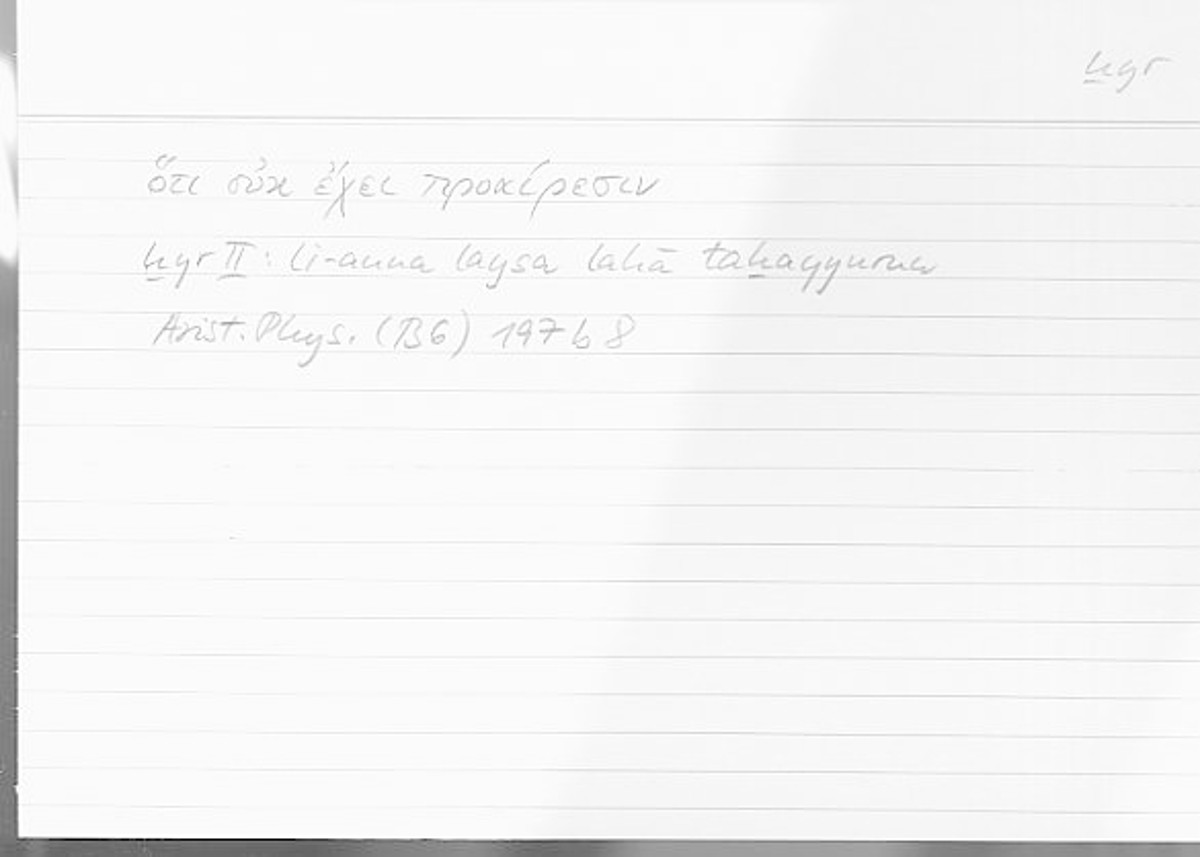 ẖyr
ὅτι οὐκ ἔχει προαίρεσιν
ẖyr II: li-anna laysa lahā taẖayyurun
Arist. Phys. (B6) 197 b 8